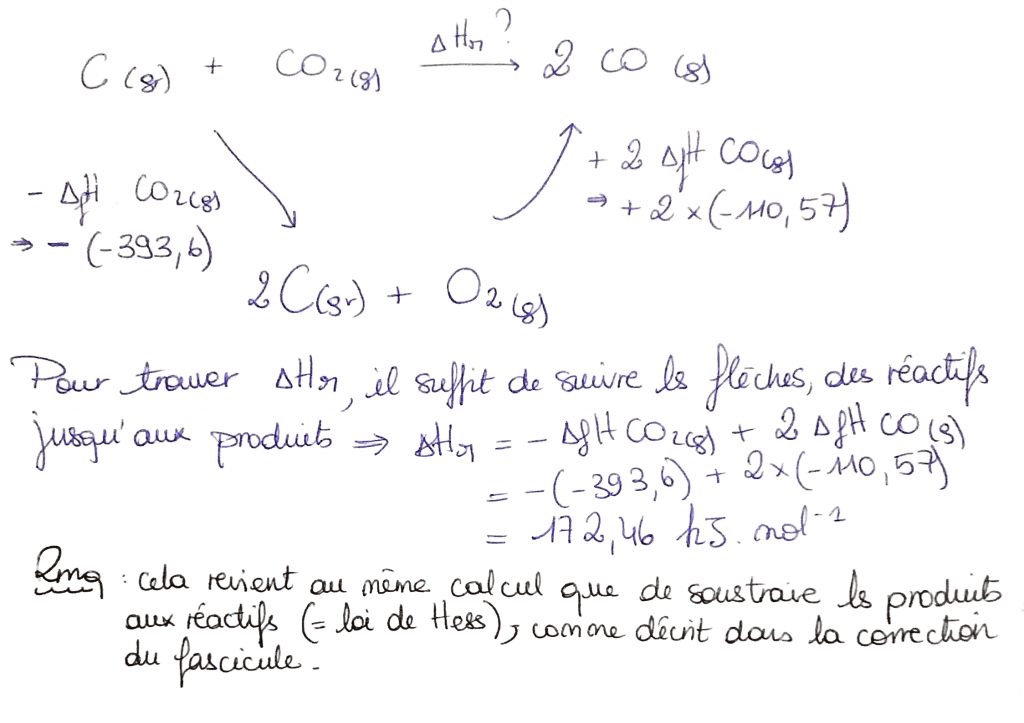 C (gr) + CO2(g) ΔHr ? → 2 CO (g)
- ΔfH CO2(g)
⇒ - (-393,6)
+ 2 ΔfH CO(g)
⇒ + 2 x (-110,57)
2C(gr) + O2 (g)
Pour trouver ΔHr, il suffit de suivre les flèches, des réactifs
jusqu'aux produits ⇒ ΔHr = - ΔfH CO2(g) + 2 ΔfH CO(g)
= -(-393,6) + 2x(-110,57)
= 172,46 kJ.mol-1
Rmq : cela revient au même calcul que de soustraire les produits
aux réactifs (= loi de Hess), comme décrit dans la correction
du fascicule.